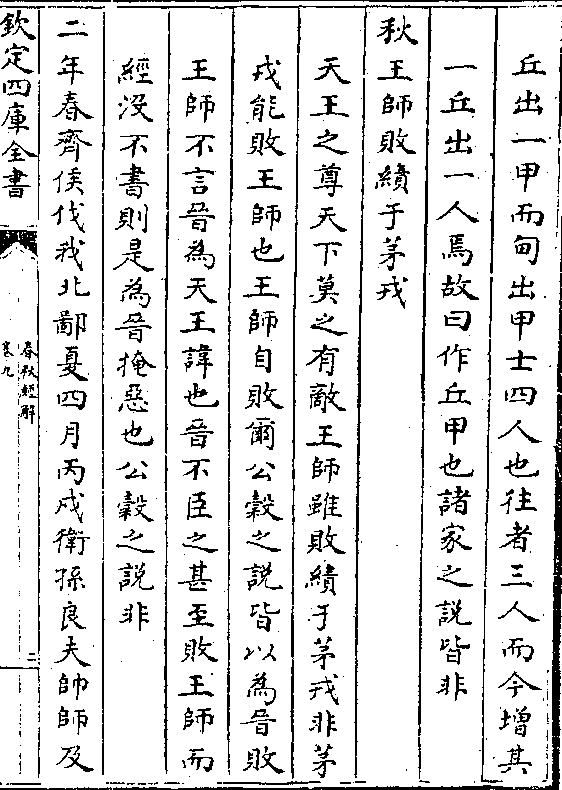 丘出一甲而甸出甲士四人也往者三人而今增其
一丘出一人焉故曰作丘甲也諸家之說皆非
秋王師敗績于茅戎
天王之尊天下莫之有敵王師雖敗績于茅戎非茅
戎能敗王師也王師自敗爾公縠之說皆以為晉敗
王師不言晉為天王諱也晉不臣之甚至敗王師而
經没不書則是為晉掩惡也公縠之說非
二年春齊侯伐我北鄙夏四月丙戌衛孫良夫帥師及
欽定四庫全書
春秋經解
卷九
二